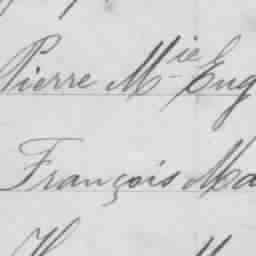 Pierre M^ie Eug
François Ma